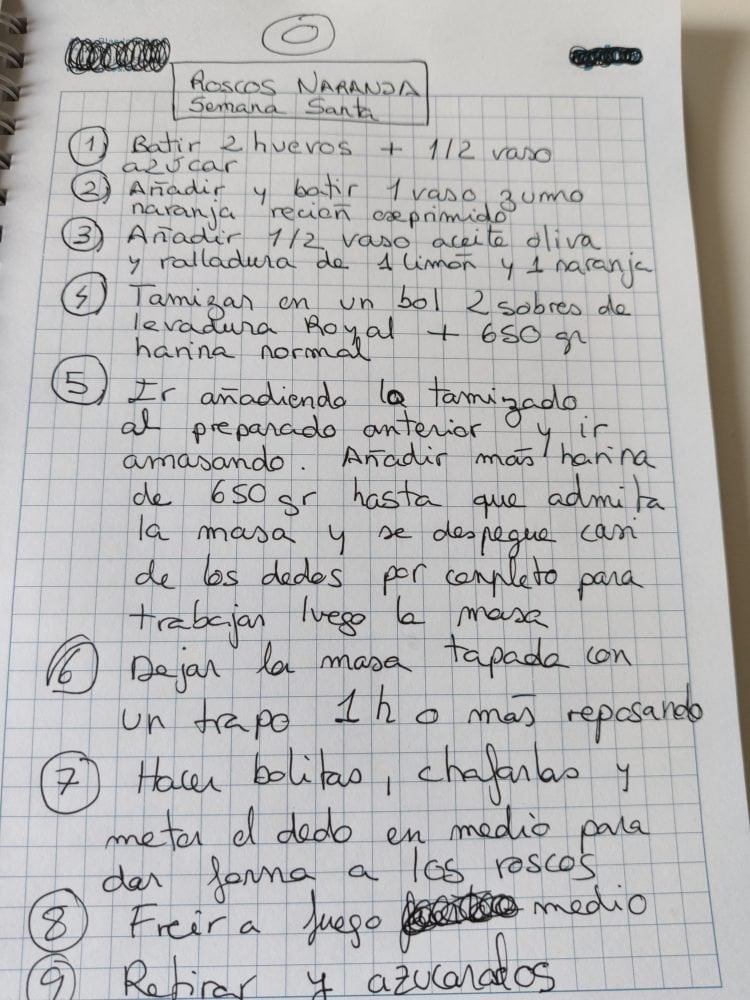 ROSCOS NARANJA
Semana Santa
1 Batir 2 huevos + 1/2 vaso
azúcar
2 Añadir y batir 1 vaso zumo
naranja recién exprimido
3 Añadir 1/2 vaso aceite oliva
y ralladura de 1 limón y 1 naranja
4 Tamizar en un bol 2 sobres de
levadura Royal + 650 gr
harina normal
5 Ir añadiendo lo tamizado
al preparado anterior y ir
amasando. Añadir más harina
de 650 gr hasta que admita
la masa y se despegue casi
de los dedos por completo para
trabajar luego la masa
6 Dejar la masa tapada con
un trapo 1 h o más reposando
7 Hacer bolitas, chafarlas y
meter el dedo en medio para
dar forma a los roscos
8 Freír a fuego medio
9 Retirar y azucarados